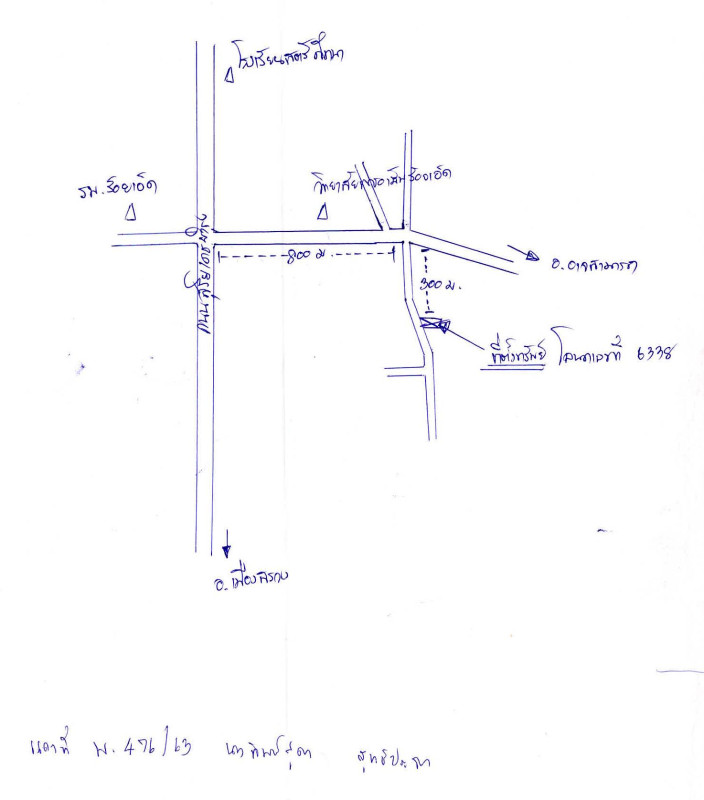 โรงเรียนสตรีศึกษา
รพ.ร้อยเอ็ด
วิทยาลัยการอาชีพร้อยเอ็ด
ถนนสุริยเดชบำรุง
800 ม.
300 ม.
อ.อาจสามารถ
ที่ตั้งทรัพย์ โฉนดเลขที่ 6338
อ.เมืองสรวง
แดงที่ พ. 476/63